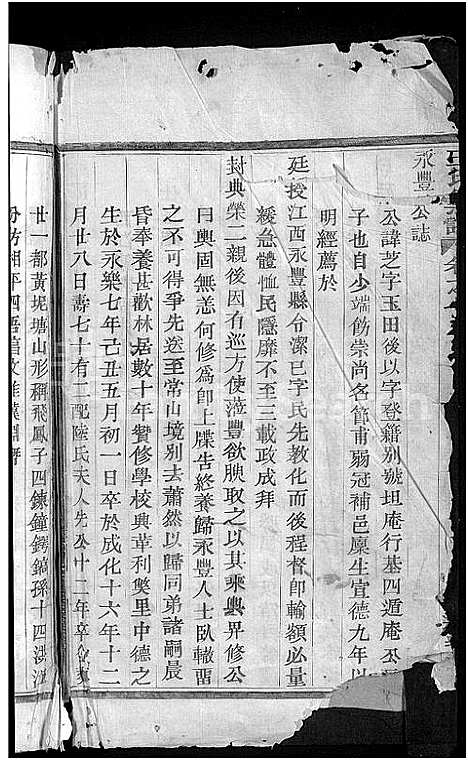 永豐公誌
公諱芝字玉田後以字登籍別號坦庵行基四遁庵公
子也自少端飭崇尚名節甫弱冠補邑廩生宣德九年以
明經薦於
廷授江西永豐縣令潔已字民先教化而後程督即輸額必量
緩急體恤民隱靡不至三載政成拜
封典榮二親後因有巡方使蒞豐欲腴取之以其乘輿畀修公
曰輿固無恙何修為即上牒告終養歸永豐人士臥轍畱
之不可得爭先送至常山境別去蕭然以歸同弟諸嗣晨
昏奉養甚歡林居數十年贊修學校興革利獘里中德之
生於永樂七年己丑五月初一日卒於成化十六年十二
月廿八日壽七十有二配陸氏夫人先公十二年卒
廿一都黃坭塘山形稱飛鳳子四鍊鐘鍔鎬孫十四洪